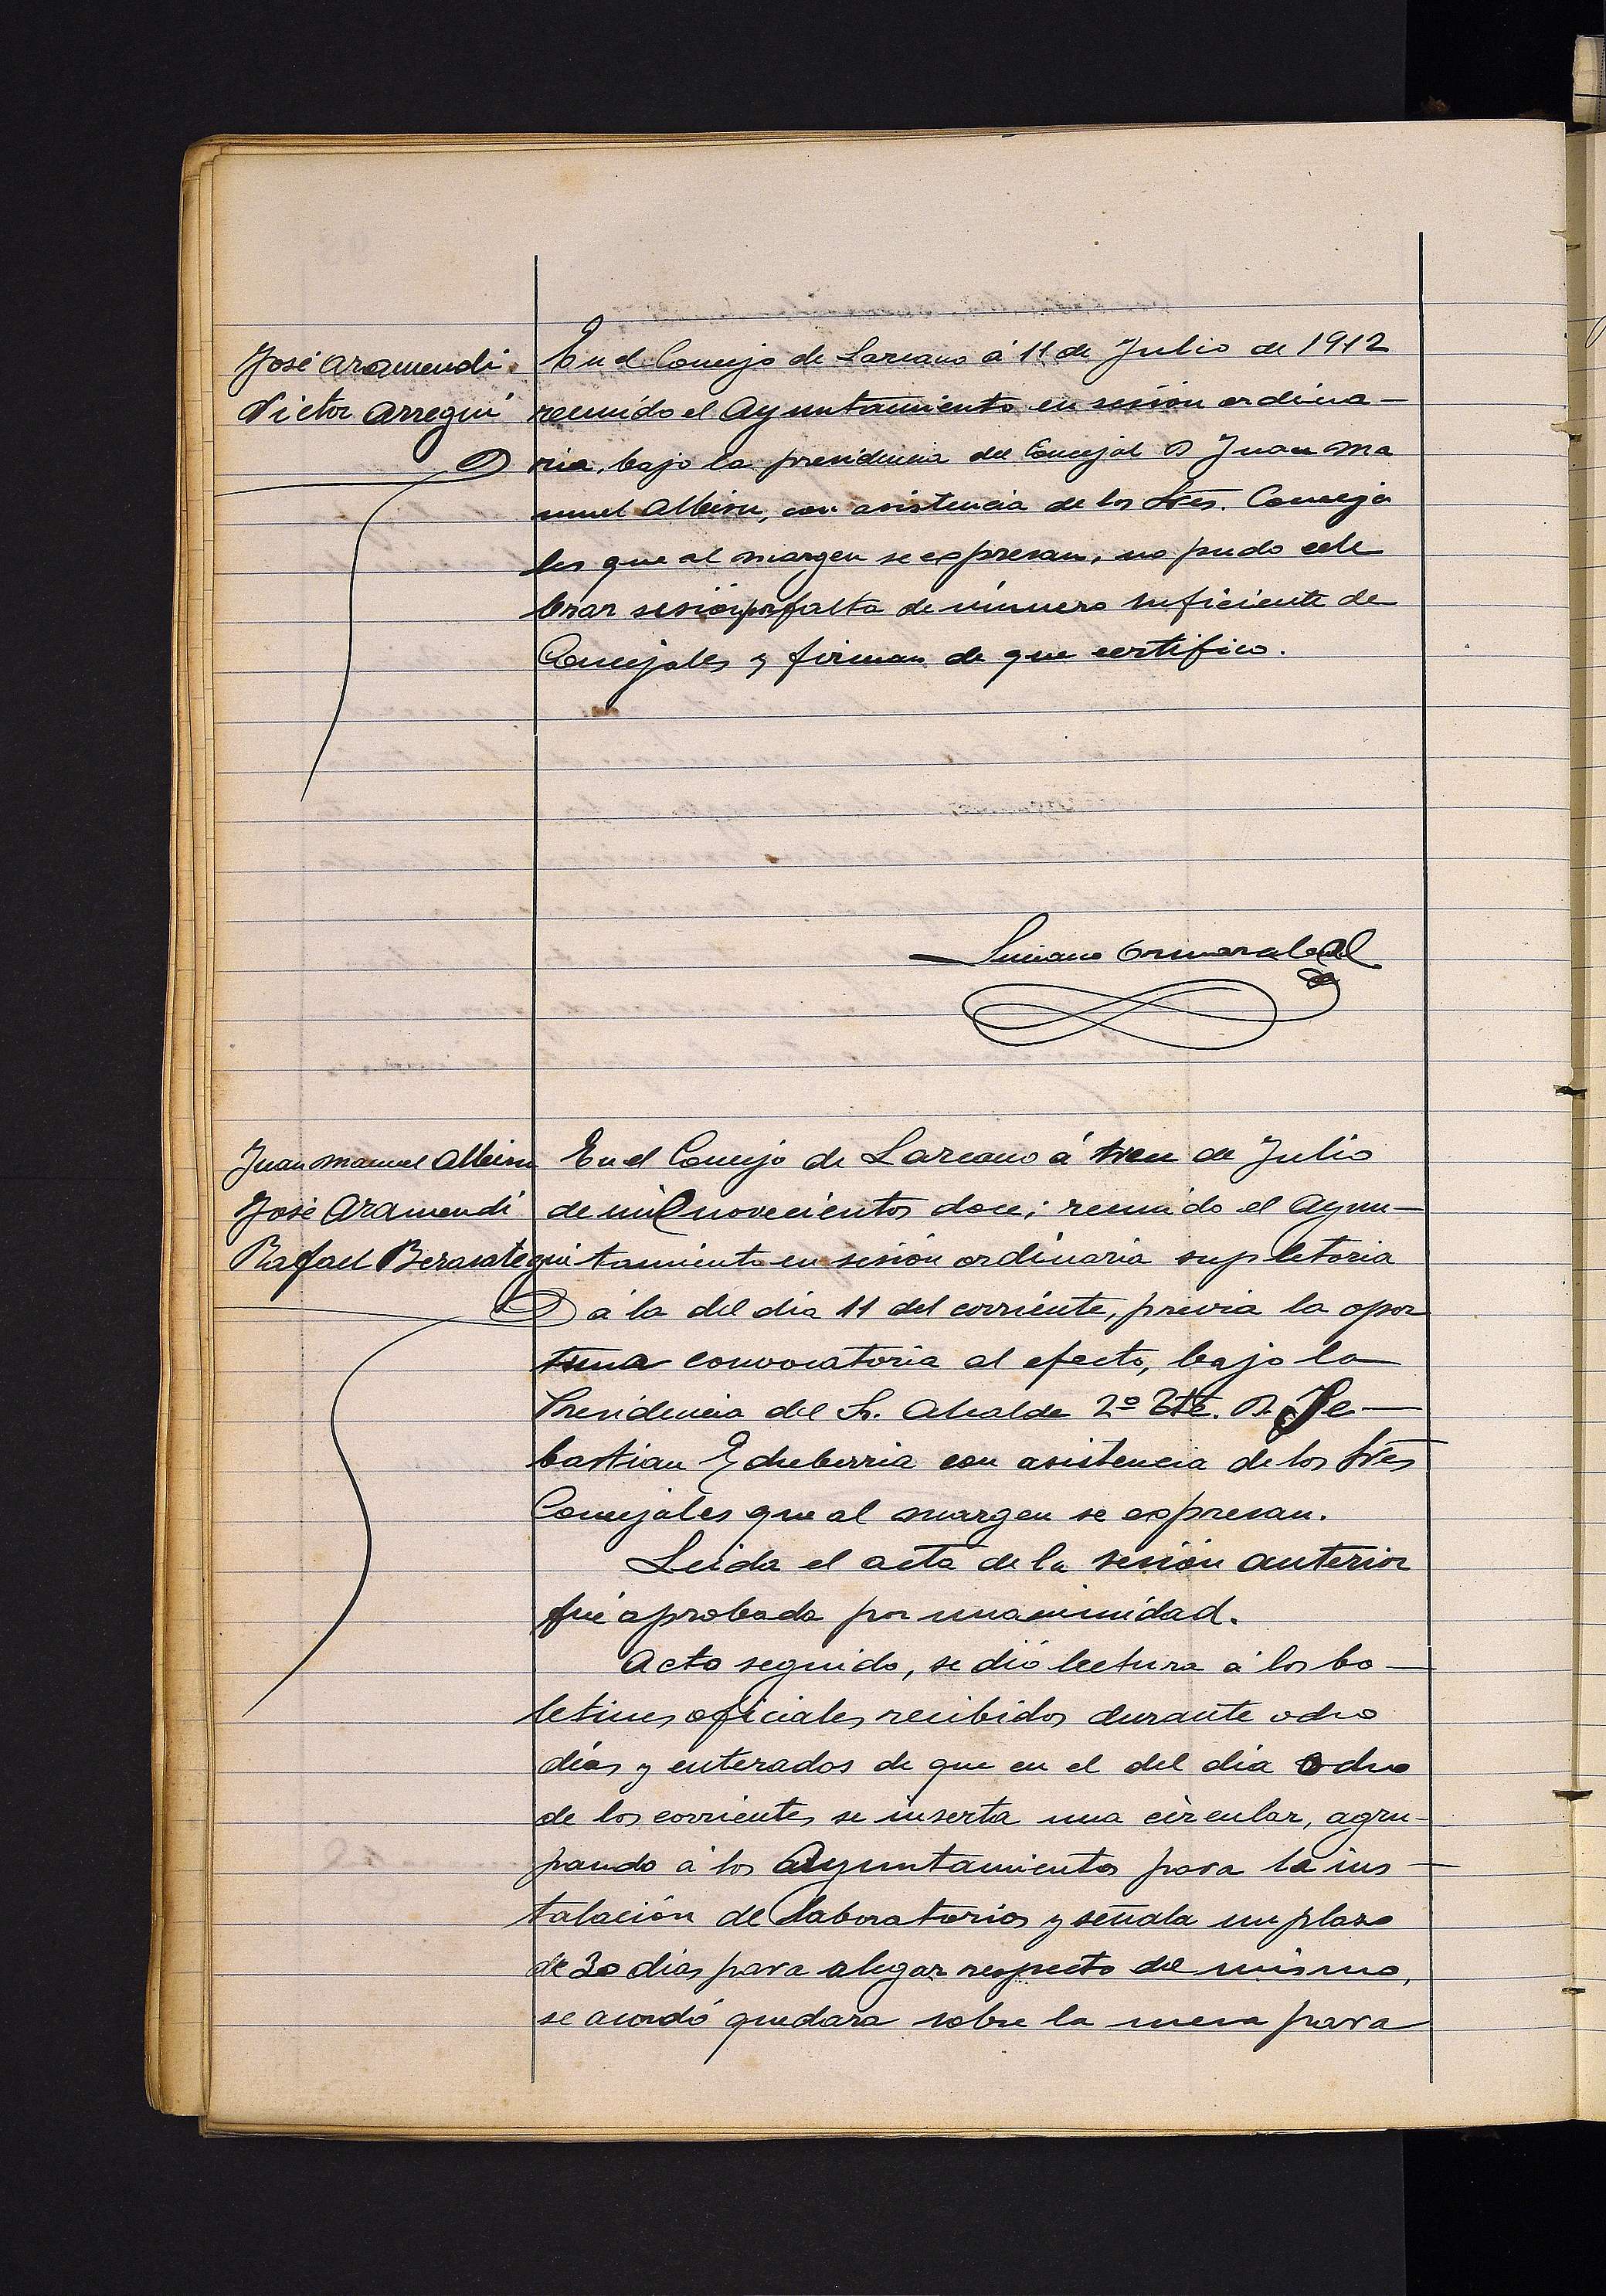 José Aramendi
Victor Arregui
En el Concejo de Lazcano á 11 de Julio de 1912
reunido el Ayuntamiento en sesión ordina-
ria, bajo la presidencia del Concejal D Juan Ma
nuel Albisu, con asistencia de los Sres. Conceja
les que al margen se expresan, no pudo cele
brar sesión por falta de número suficiente de
Concejales y firman de que certifico.
Luciano Ormazabal
Juan Manuel Albisu
José Aramendi
Rafael Berasategui
En el Concejo de Lazcano á trece de Julio
de mil novecientos doce; reunido el Ayun-
tamiento en sesión ordinaria supletoria
á la del dia 11 del corriente, previa la opor
tuna convocatoria al efecto, bajo la
Presidencia del Sr. Alcalde 2º Tte. D. Se-
bastian Echeberria con asistencia de los Sres
Concejales que al margen se expresan.
Leida el acta de la sesión anterior
fué aprobada por unanimidad.
Acto seguido, se dió lectura á los bo-
letines oficiales recibidos durante ocho
días y enterados de que en el del dia ocho
de los corrientes se inserta una circular, agru-
pando á los Ayuntamientos para la ins-
talación de Laboratorios y señala un plazo
de 30 dias para alegar respecto del mismo,
se acordó quedara sobre la mesa para